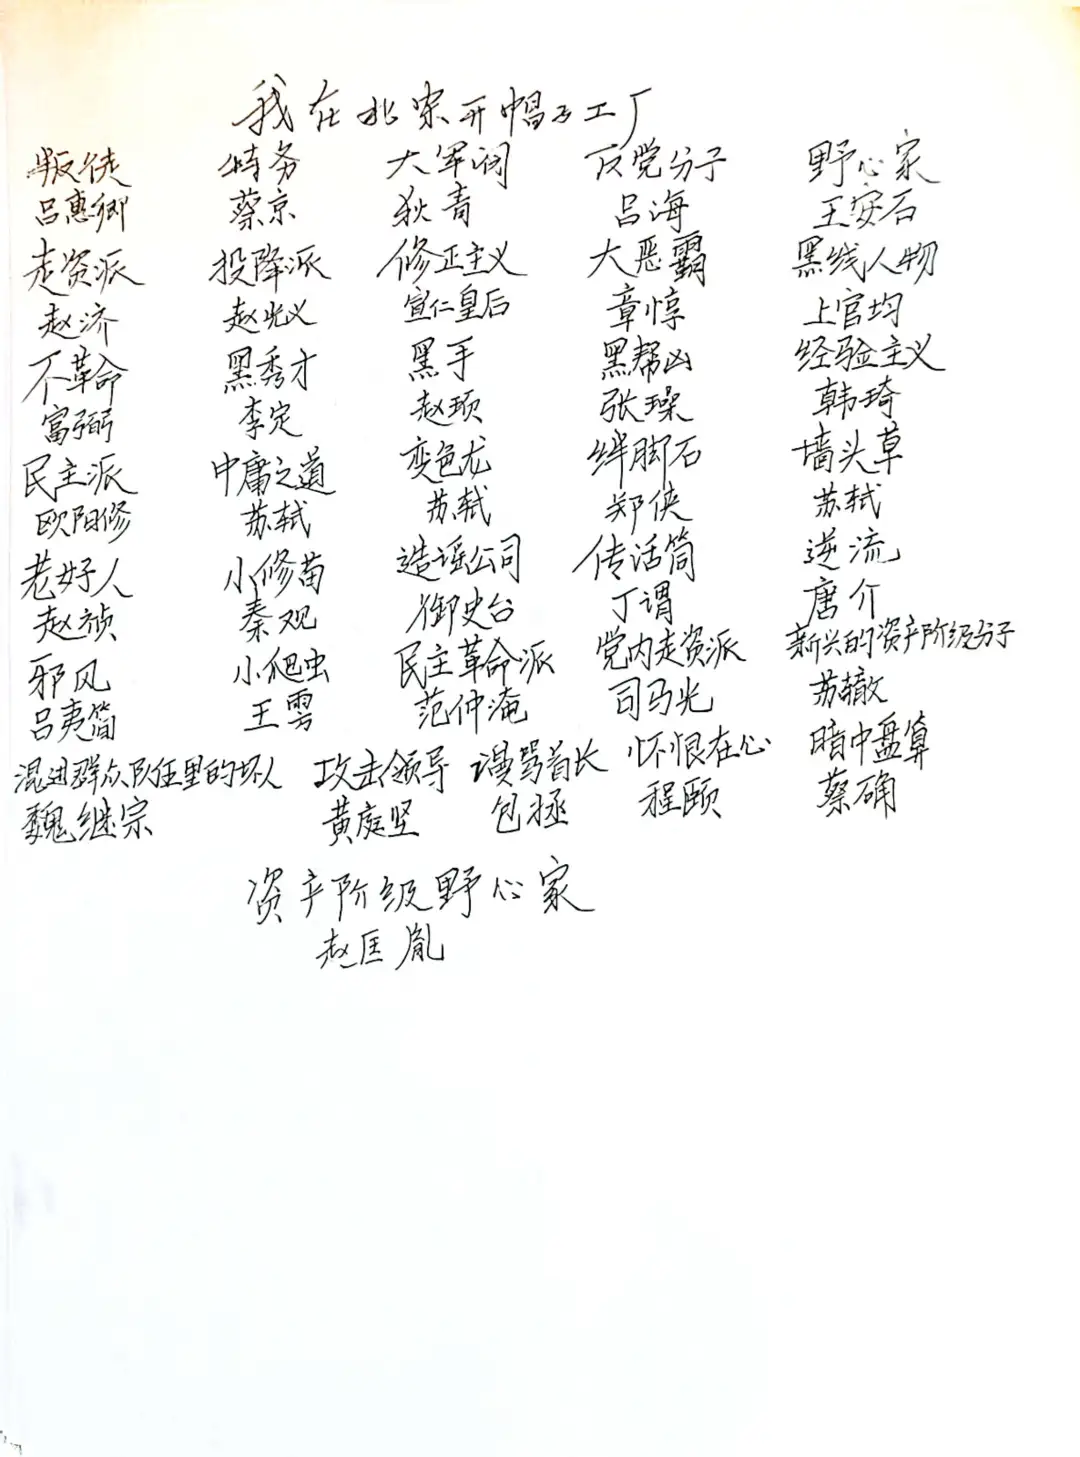 我在北宋开帽子工厂
叛徒 特务 大军阀 反党分子 野心家
吕惠卿 蔡京 狄青 吕海 王安石
走资派 投降派 修正主义 大恶霸 黑线人物
赵济 赵光义 宣仁皇后 章惇 上官均
不革命 黑秀才 黑手 黑帮凶 经验主义
富弼 李定 赵顼 张璪 韩琦
民主派 中庸之道 变色龙 绊脚石 墙头草
欧阳修 苏轼 苏轼 郑侠 苏轼
老好人 小修苗 造谣公司 传话筒 逆流
赵祯 秦观 御史台 丁谓 唐介
邪风 小爬虫 民主革命派 党内走资派 新兴的资产阶级分子
吕夷简 王雱 范仲淹 司马光 苏辙
混进群众队伍里的坏人 攻击领导 谩骂首长 怀恨在心 暗中盘算
魏继宗 黄庭坚 包拯 程颐 蔡确
资产阶级野心家
赵匡胤